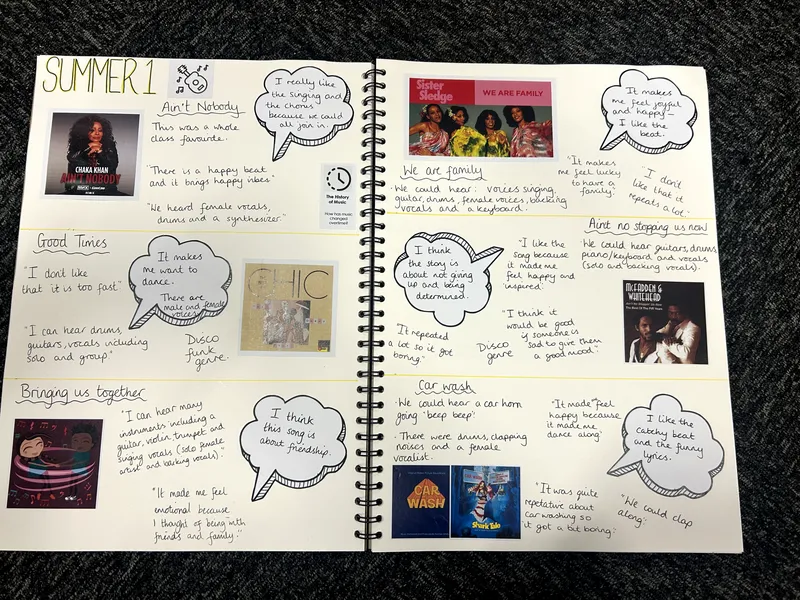 SUMMER 1
Ain't Nobody
This was a whole
class favourite.
"There is a happy beat
and it brings happy vibes"
"We heard female vocals,
drums and a synthesizer."
CHAKA KHAN
AIN'T NOBODY
I really like
the singing and
the chorus
because we could
all join in.
The History
of Music
How has music
changed
overtime?
Good Times
"I don't like
that it is too fast"
"I can hear drums,
guitars, vocals including
solo and group."
It makes
me want to
dance.
There are
male and female
voices.
Disco
funk
genre.
CHIC
Bringing us together
"I can hear many
instruments including a
guitar, violin, trumpet and
singing vocals (solo female
artist and backing vocals)."
"It made me feel
emotional because
I thought of being with
friends and family."
I think
this song is
about friendship.
Sister
Sledge
WE ARE FAMILY
It makes
me feel joyful
and happy -
I like the
beat.
We are family
We could hear: voices singing,
guitar, drums, female voices, backing
vocals and a keyboard.
"It makes
me feel lucky
to have a
family."
"I don't
like that it
repeats a lot."
Aint no stopping us now
We could hear guitars, drums,
piano/keyboard and vocals
(solo and backing vocals).
I think
the story is
about not giving
up and being
determined.
"I like the
song because
it made me
feel happy and
inspired."
"It repeated
a lot so it got
boring."
Disco
genre
"I think it
would be good
if someone is
sad to give them
a good mood."
McFADDEN &
WHITEHEAD
Car wash
· We could hear a car horn
going 'beep beep'.
· There were drums, clapping
noises and a female
vocalist.
"It made me feel
happy because
it made me
dance along"
I like the
catchy beat
and the funny
lyrics.
CAR
WASH
Shark Tale
"It was quite
repetative about
car washing so
it got a bit boring."
"We could clap
along."